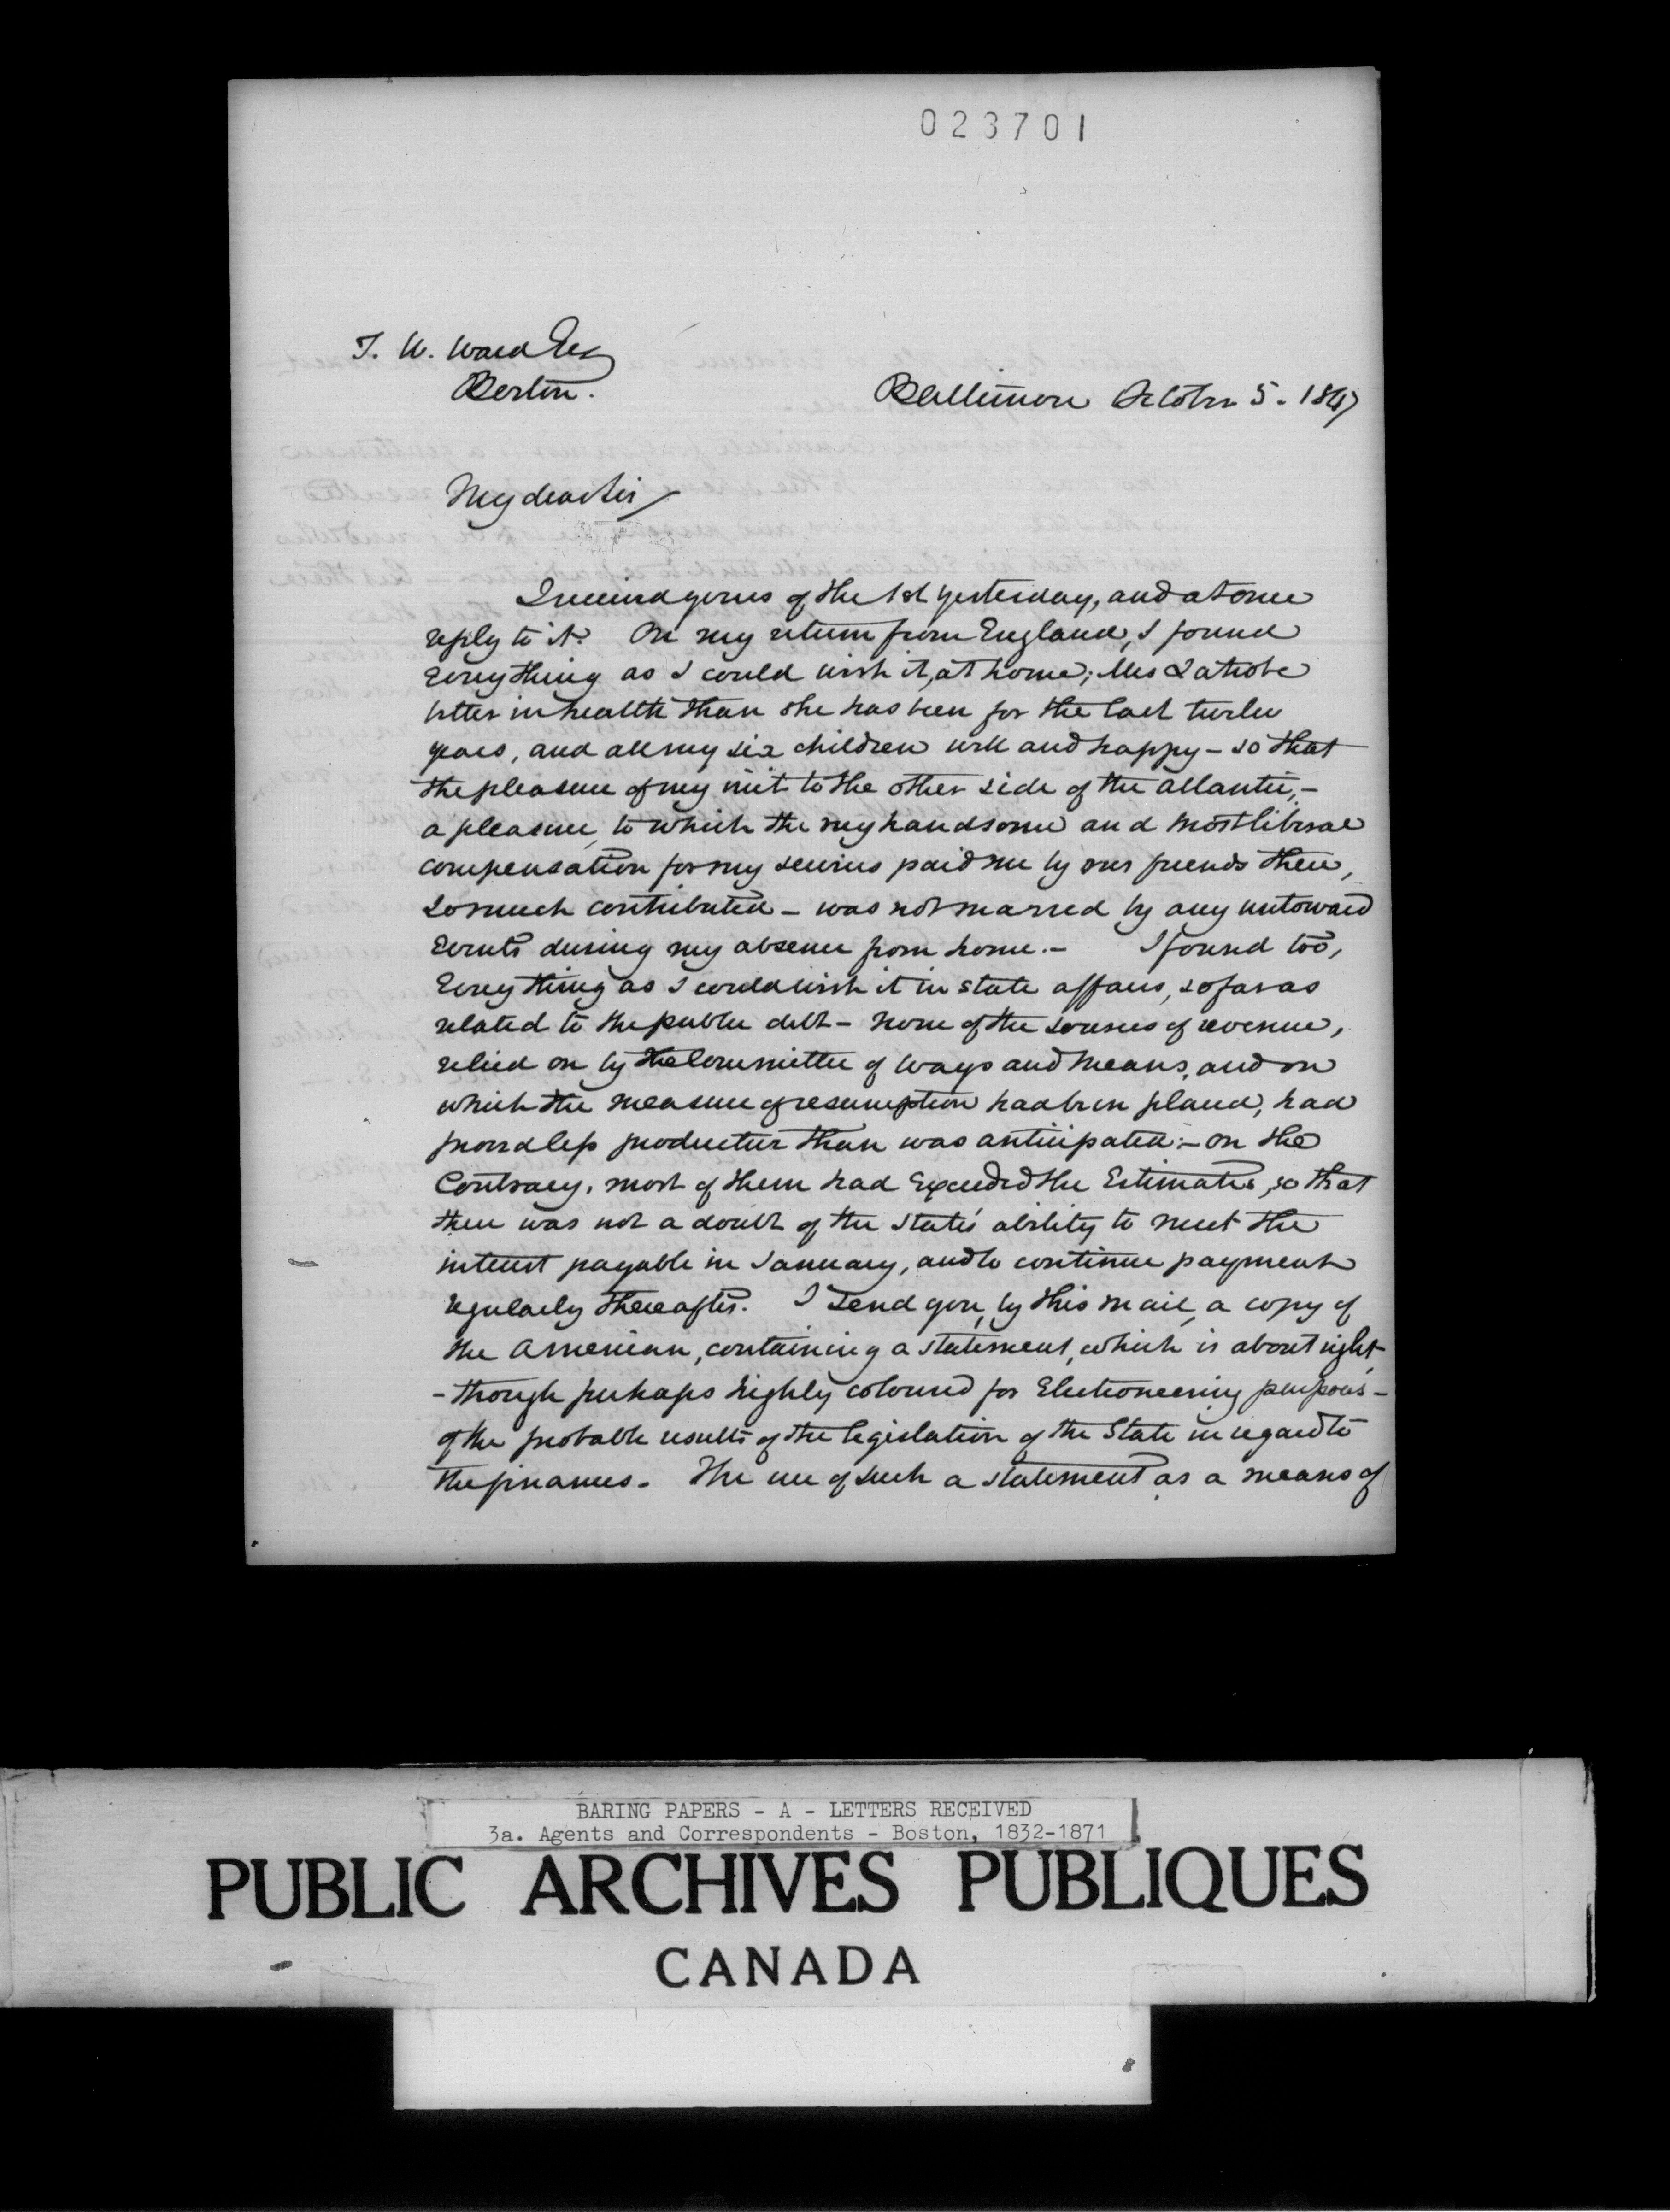 023701
T. W. Ward Esq
Boston.
Baltimore October 5. 1847
My dear Sir
I received yours of the 1st yesterday, and at once
reply to it. On my return from England, I found
everything as I could wish it, at home; Mrs Latrobe
better in health than she has been for the last twelve
years, and all my six children well and happy - so that
the pleasure of my visit to the other side of the Atlantic, -
a pleasure, to which the very handsome and most liberal
compensation for my services paid me by our friends there,
so much contributed - was not marred by any untoward
events during my absence from home. - I found too,
Every thing as I could wish it in state affairs, so far as
related to the public debt - None of the sources of revenue,
relied on by the Committee of Ways and Means, and on
which the measure of resumption had been placed, had
proved less productive than was anticipated: - on the
Contrary, most of them had Exceeded the Estimates, so that
there was not a doubt of the State's ability to meet the
interest payable in January, and to continue payment
regularly thereafter. I send you, by this mail, a copy of
the American, containing a statement, which is about right,
- though perhaps highly coloured for Electioneering purposes -
of the probable results of the legislation of the State in regard to
the finances. The use of such a statement as a means of
BARING PAPERS - A - LETTERS RECEIVED
3a. Agents and Correspondents - Boston, 1832-1871
PUBLIC ARCHIVES PUBLIQUES
CANADA